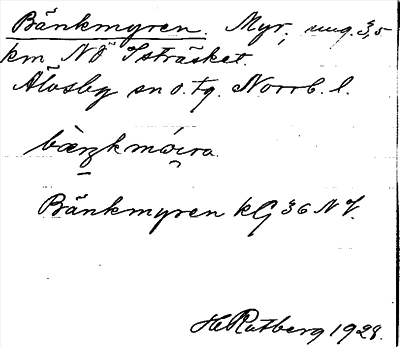 Bänkmyren. Myr, ung. 3,5
km. NÖ Isträsket.
Älvsby sn o. tg. Norrb. l.
Bänkmyren kG 36 NV.
H Rutberg 1928.